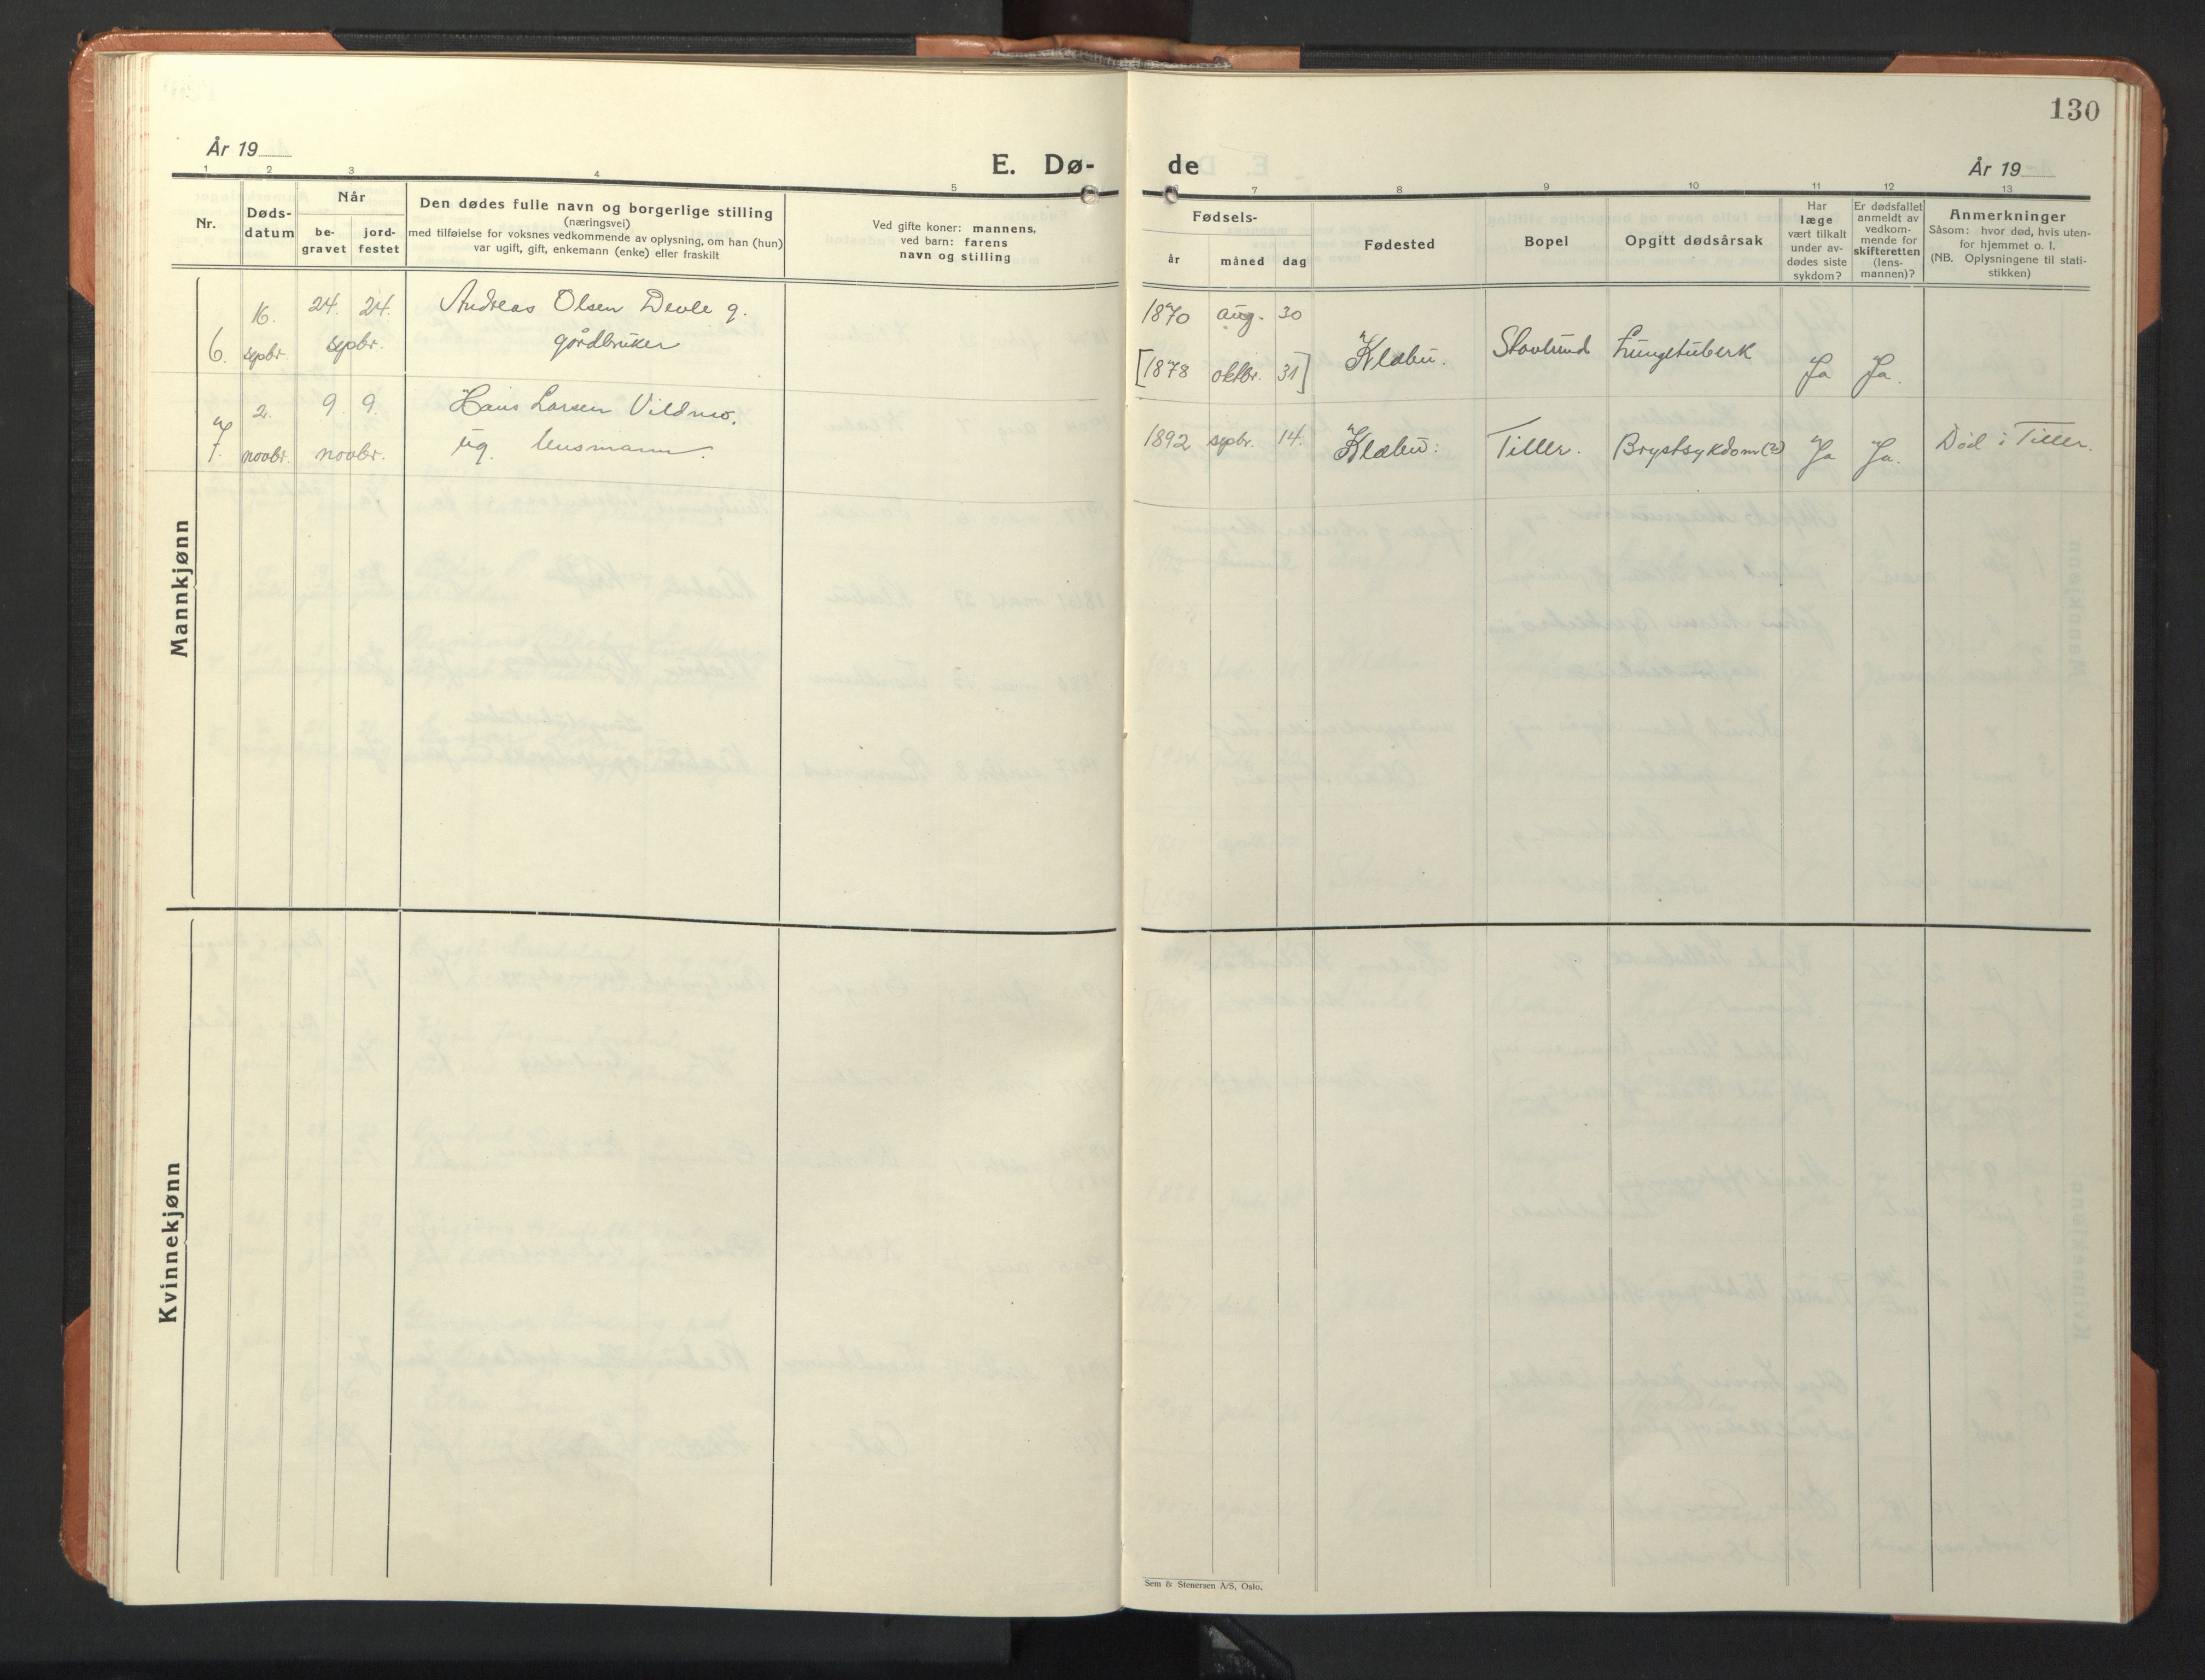 130
År 19
E. Dø-
de
År 19
1 2 3 4 5 6 7 8 9 10 11 12 13
Nr.
Døds-
datum
Når
be-
gravet
jord-
festet
Den dødes fulle navn og borgerlige stilling
(næringsvei)
med tilføielse for voksnes vedkommende av oplysning, om han (hun)
var ugift, gift, enkemann (enke) eller fraskilt
Ved gifte koner: mannens,
ved barn: farens
navn og stilling
Fødsels-
år måned dag
Fødested
Bopel
Opgitt dødsårsak
Har
læge
vært tilkalt
under av-
dødes siste
sykdom?
Er dødsfallet
anmeldt av
vedkom-
mende for
skifteretten
(lens-
mannen)?
Anmerkninger
Såsom: hvor død, hvis uten-
for hjemmet o. l.
(NB. Oplysningene til stati-
stikken)
Mannkjønn
16. 24. 24. Andreas Olsen Devle g. 1870 aug. 30
6. sepbr. sepbr. gårdbruker [1878 oktbr. 31] Klæbu. Stavlund Lungetuberk Ja Ja.
2. 9. 9. Hans Larsen Vildmo.
7. novbr. novbr. ug. lensmann. 1892 sepbr. 14. Klæbu: Tiller. Brystsykdom(?) Ja Ja. Død i Tiller.
Kvinnekjønn
Sem & Stenersen A/S, Oslo.